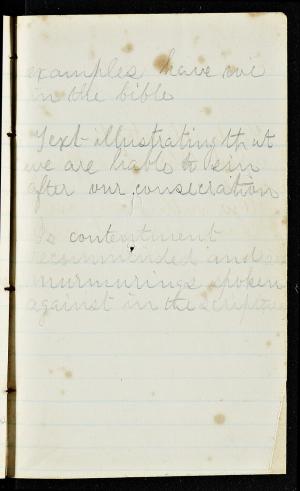 examples have we
in the bible
Text illustrating that
we are liable to sin
after our consecration
Is contentment
recommended and
murmurings spoken
against in the scripture